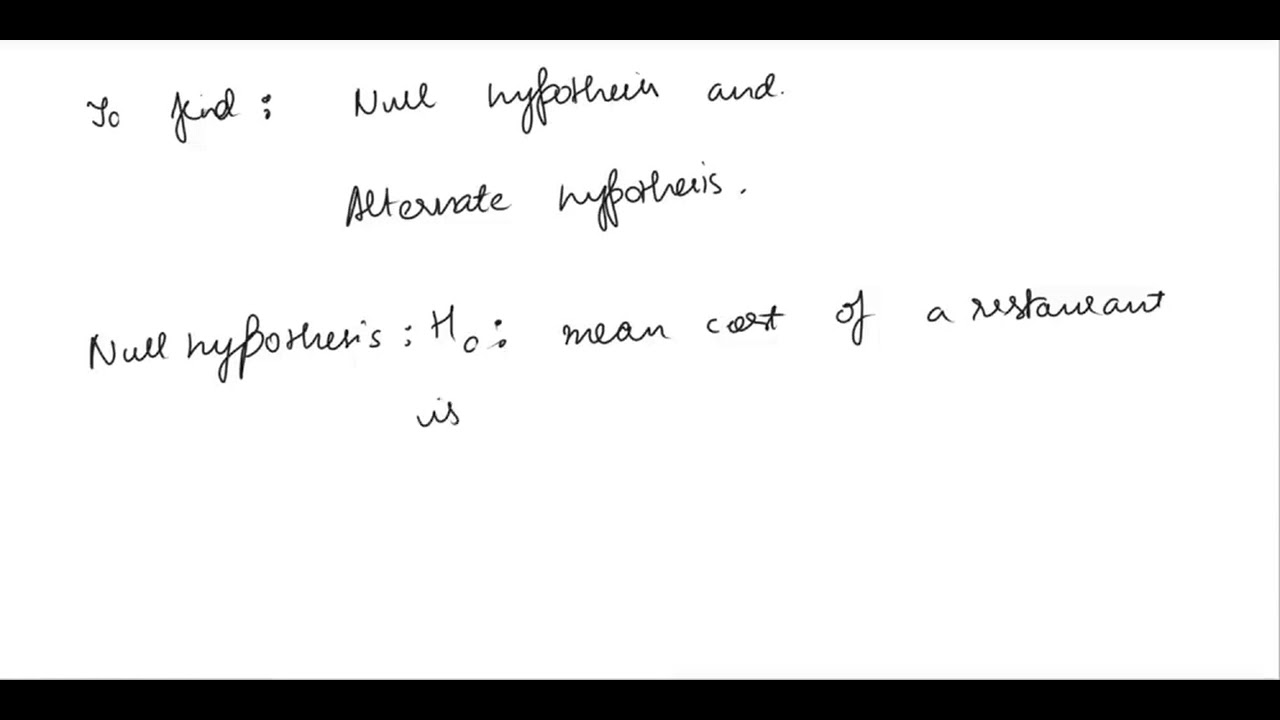 To find : Null hypothesis and.
Alternate hypothesis.
Null hypothesis : H₀ : mean cost of a restaurant
is